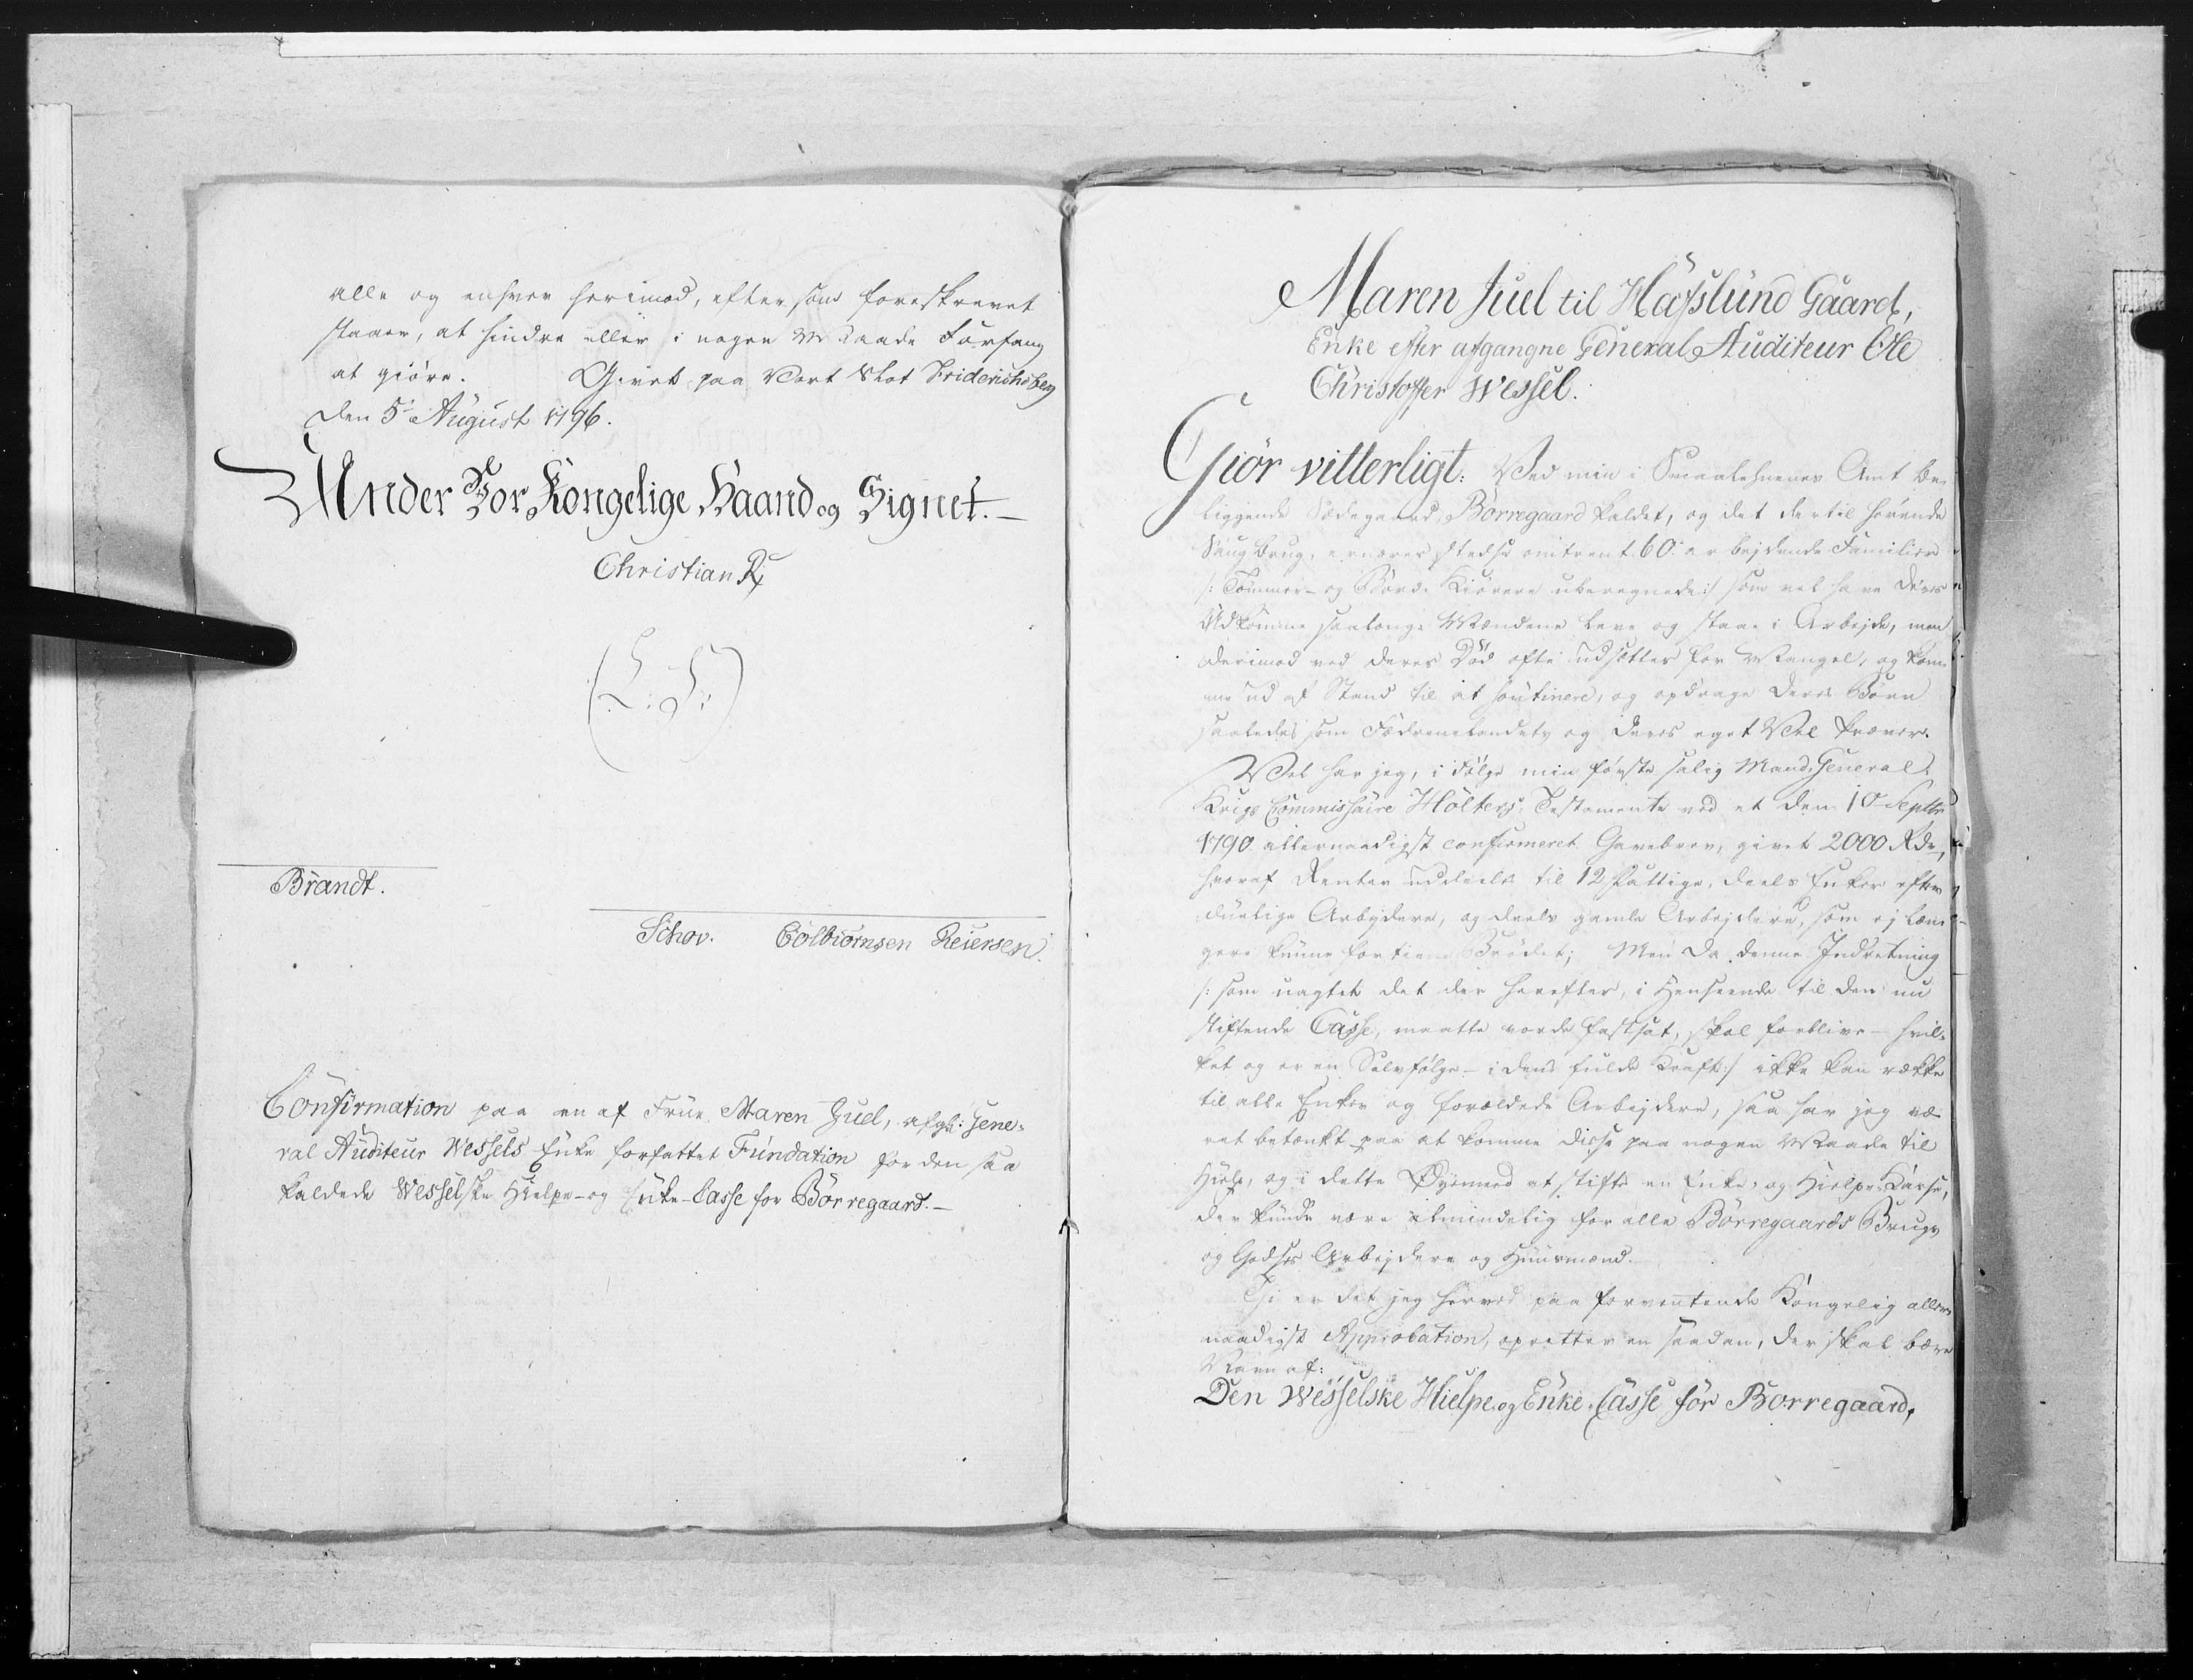 alle og enhver herimod, efter som foreskrevet
staaer, at hindre eller i nogen Maade Forfang
at giöre. Givet paa Vort Slot Friderichsberg
den 5te August 1796.
Under Vor Kongelige Haand og Signet.—
Christian R
(L. S.)
Brandt.
Schov. Colbiørnsen Reiersen.
Confirmation paa en af Frue Maren Juel, afg: Gene=
ral Auditeur Wessels Enke forfattet Fundation for den saa
kaldede Wesselske Hielpe- og Enke-Casse for Börregaard.—
Maren Juel til Hafslund Gaard,
Enke efter afgangne General Auditeur Ole
Christoffer Wessel.
Giör vitterligt: Ved min i Smaalehnenes Amt be=
liggende Sædegaard, Börregaard kaldet, og det dertil hørende
Saugbrug, ernæres stedse omtrent 60 arbejdende Familier
/: Tømmer- og Bord-Kiørere uberegnede :/ som vel have deres
Udkomme saalænge Mændene leve og staae i Arbejde, men
derimod ved deres Død ofte udsættes for Mangel, og kom=
me ud af Stand til at soutinere, og opdrage deres Børn
saaledes som Fædrenelandets og deres eget Vel kræver.
Vel har jeg, i Følge min første salig Mand, General=
Krigs Commissaire Holters Testamente ved et den 10 Septbr
1790 allernaadigst confirmeret Gavebrev, givet 2000 Rdr,
hvoraf Renter uddeles til 12 Fattige, deels Enker efter
duelige Arbejdere, og deels gamle Arbejdere, som ej læn=
gere kunne fortiene Brödet; Men da denne Indretning
/: som uagtet det der herefter, i Henseende til den nu
stiftende Casse, maatte vorde fastsat, skal forblive - hvil=
ket og er en Selvfølge - i dens fulde Kraft :/ ikke kan række
til alle Enker og forældede Arbejdere, saa har jeg væ=
ret betænkt paa at komme disse paa nogen Maade til
Hielp, og i dette Øyemeed at stifte en Enke- og Hielpe-Casse,
der kunde være almindelig for alle Börregaards Brugs
og Godses Arbejdere og Huusmænd.
Thi er det jeg herved paa forventende Kongelig aller=
naadigst Approbation, opretter en saadan, der skal bære
Navn af:
Den Wesselske Hielpe- og Enke-Casse för Borregaard,